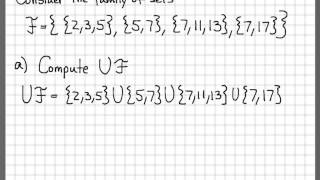 Consider the family of sets
ℱ = { {2,3,5}, {5,7}, {7,11,13}, {7,17} }
a) Compute ∪ℱ
∪ℱ = {2,3,5} ∪ {5,7} ∪ {7,11,13} ∪ {7,17}